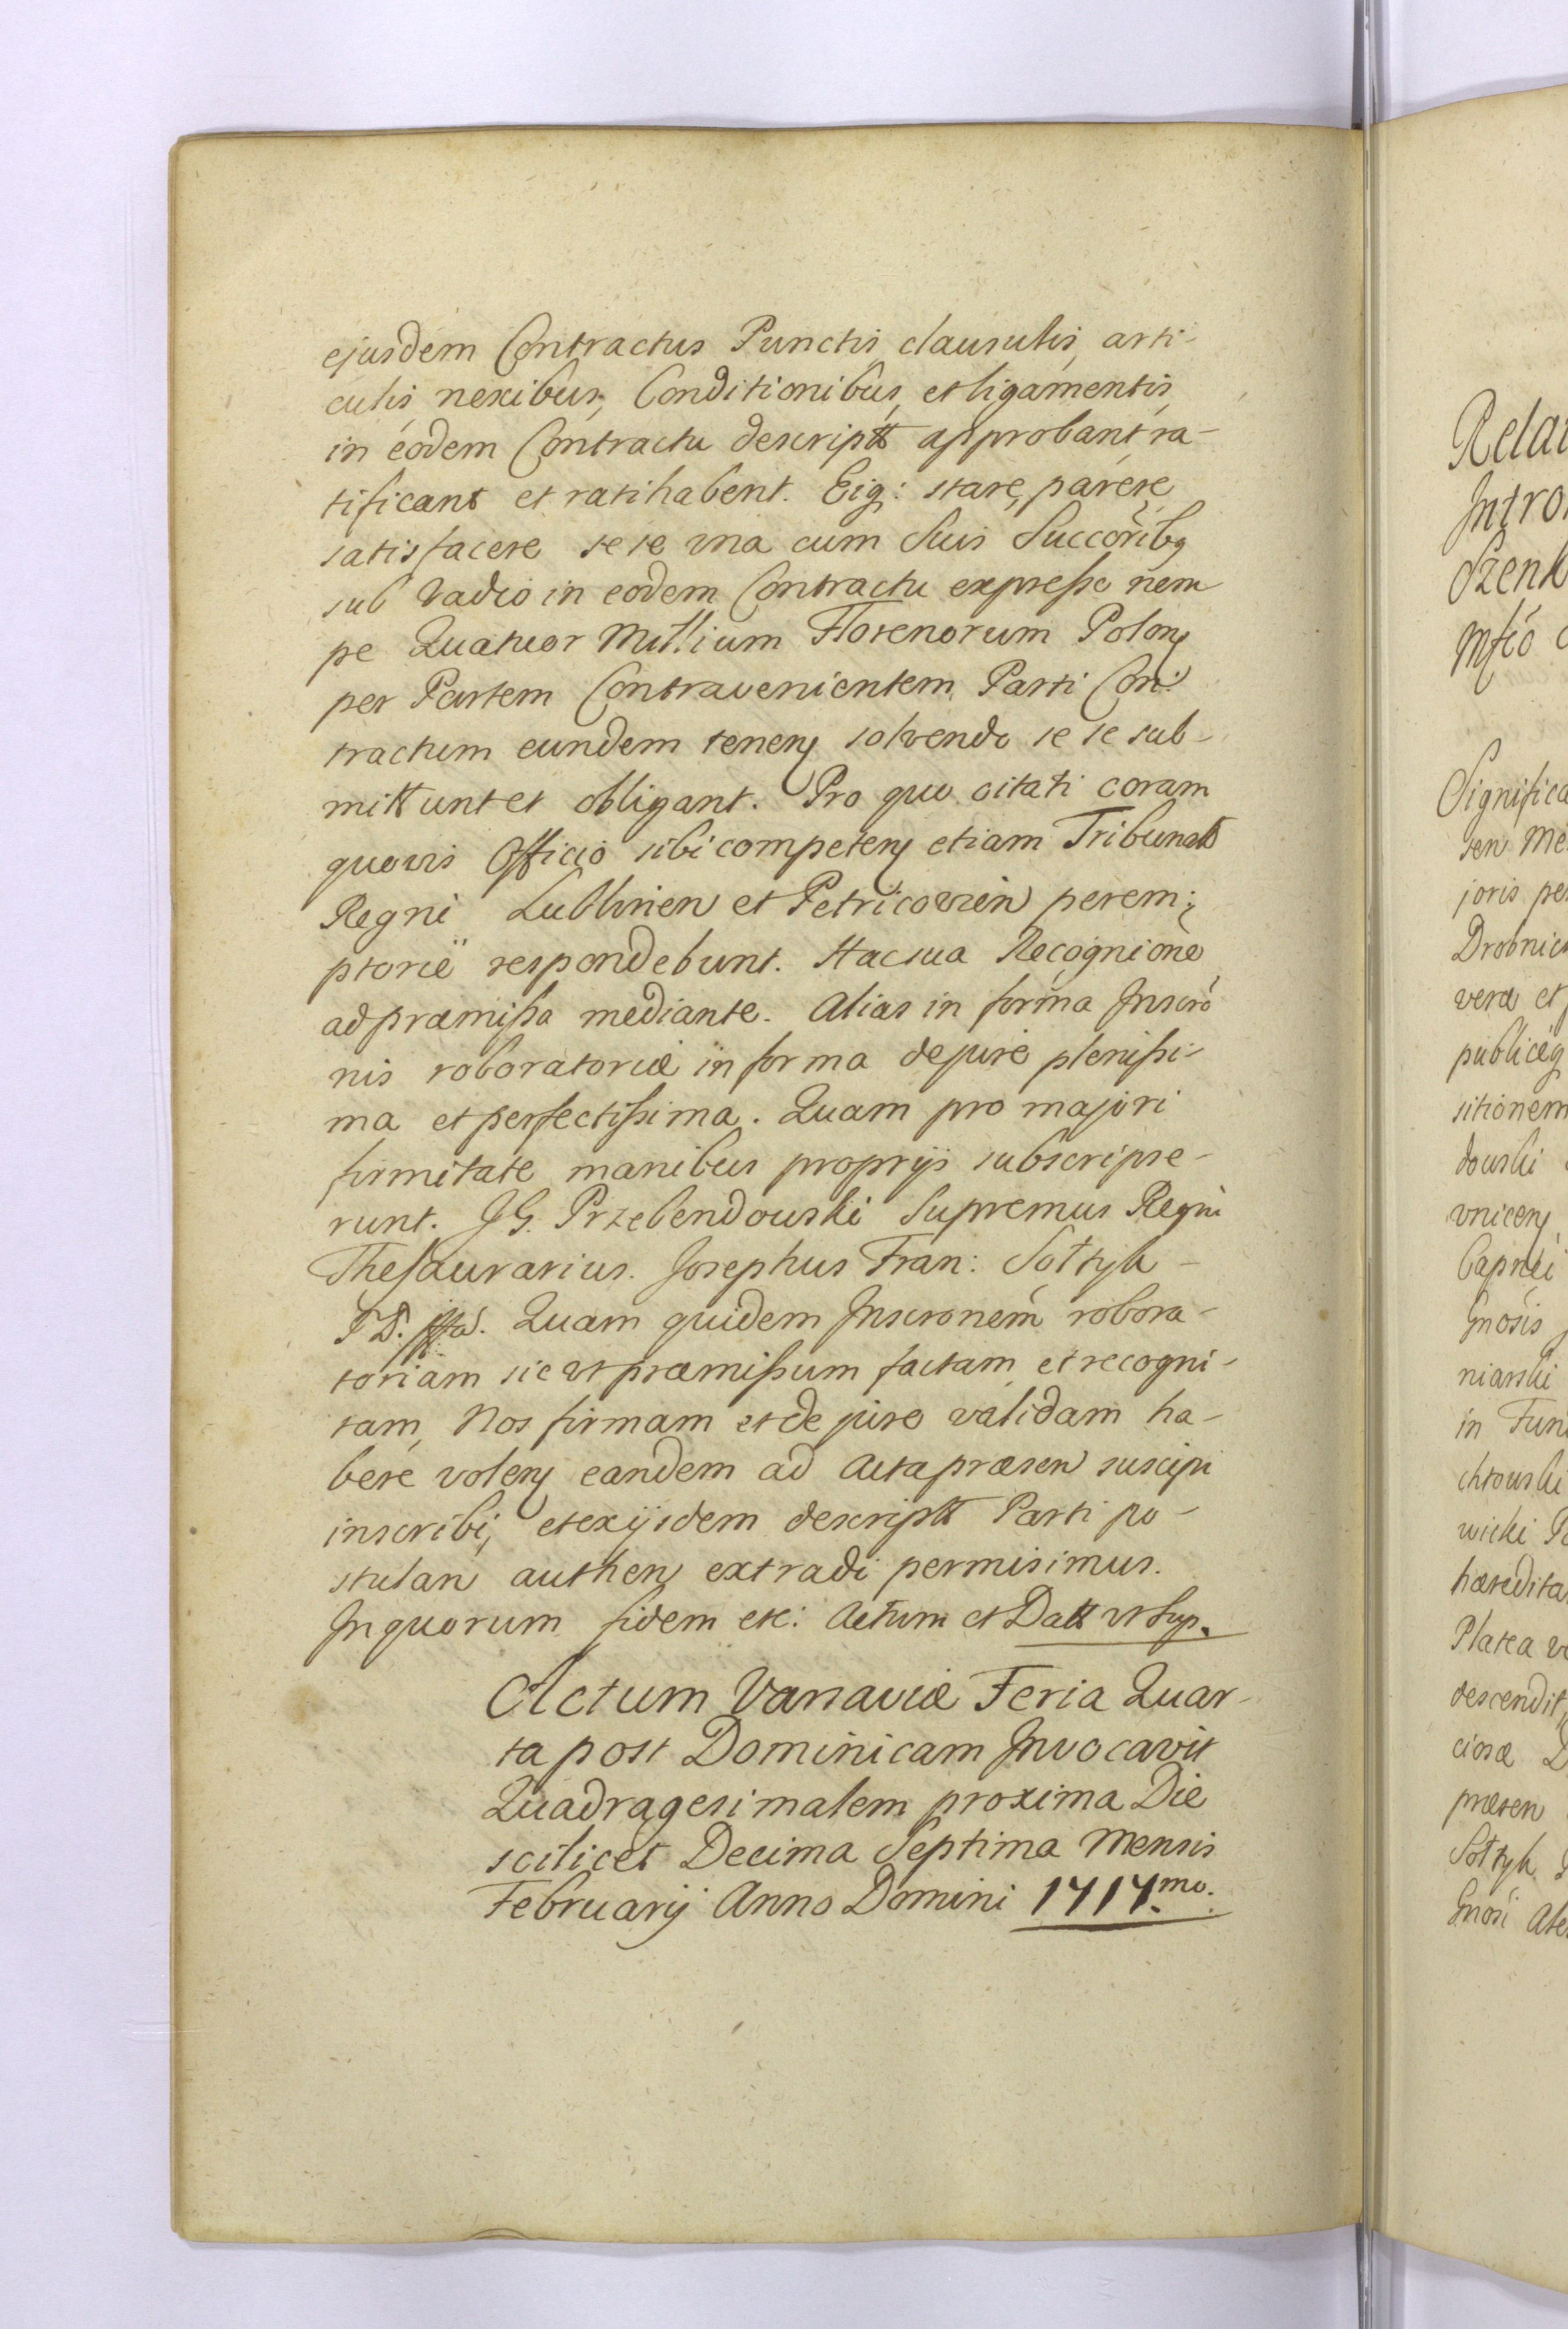 ejusdem Contractus Punctis, clausulis, arti-
culis, nexibus, Conditionibus, et ligamentis,
in eodem Contractu descriptt approbant ra-
tificant et ratihabent. Eiq: stare, parere,
satisfacere sese vna cum Suis Succoribq
sub Vadio in eodem Contractu expresso nem
pe Quatuor Millium Florenorum Polon
per Partem Contravenientem Parti Con:
tractum eundem tenen solvendo se se sub-
mittunt et obligant. Pro quo citati coram
quovis Officio sibi competen etiam Tribunatt
Regni Lublinen et Petricovien perem:
ptorië respondebunt. Hac sua Recognione
ad præmissa mediante. Alias in forma Inscrõ
nis roboratoriæ in forma de jure plenissi-
ma et perfectissima. Quam pro majori
firmitate manibus proprÿs subscripse-
runt. JG. Przebendouski Supremus Regni
Thesaurarius. Josephus Fran: Sołtyk -
Quam quidem Inscronem robora-
toriam sic vt præmissum factam, et recogni-
tam, Nos firmam et de jure validam ha-
bere volen eandem ad Acta præsen suscipi
inscribi, et ex ijsdem descriptt Parti po-
stulan authen extradi permisimus.
In quorum fidem etc: Actum et Datt vt Sup.
Actum Varsaviæ Feria Quar-
ta post Dominicam Invocavit
Quadragesimalem proxima Die
scilicet Decima Septima Mensis
Februarij Anno Domini 1717.mo.
Relat
Intro
Ożenk
Mfcó
Significa
sen Me
joris pe
Drobnic
vera et p
publicéq
sitionem
douski
vnicen
Capnei
Gnosis
niarski
in Fun
chrouski
wicki P
hæredita
Platea v
descendit
ciosæ D
præsen
Sołtyk
Gnosi Ate